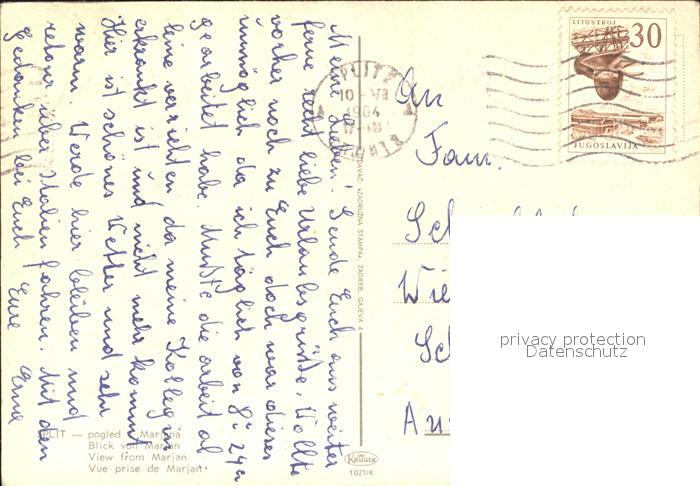 Meine Lieben! Sende Euch aus weiter
ferne recht liebe Urlaubsgrüße. Wollte
vorher noch zu Euch doch war dieses
unmöglich da ich täglich von 8-24h
gearbeitet habe. Mußte die arbeit al
leine verrichten da meine Kollegin
erkrankt ist und nicht mehr kommt
Hier ist schönes Wetter und sehr
warm Werde hier bleiben und
retour über Italien fahren. Mit den
Gedanken bei Euch Eure Erna
SPLIT — pogled s Marjana
Blick von Marjan
View from Marjan
Vue prise de Marjan
IZDAVAČ »ZADRUŽNA ŠTAMPA«, ZAGREB, GAJEVA 4
KRÜGER
1021/4
SPLIT 2
10-VII
1964
17-18
LITOSTROJ
30
JUGOSLAVIJA
An
Fam.
Sch
Wie
Sch
Au
privacy protection
Datenschutz